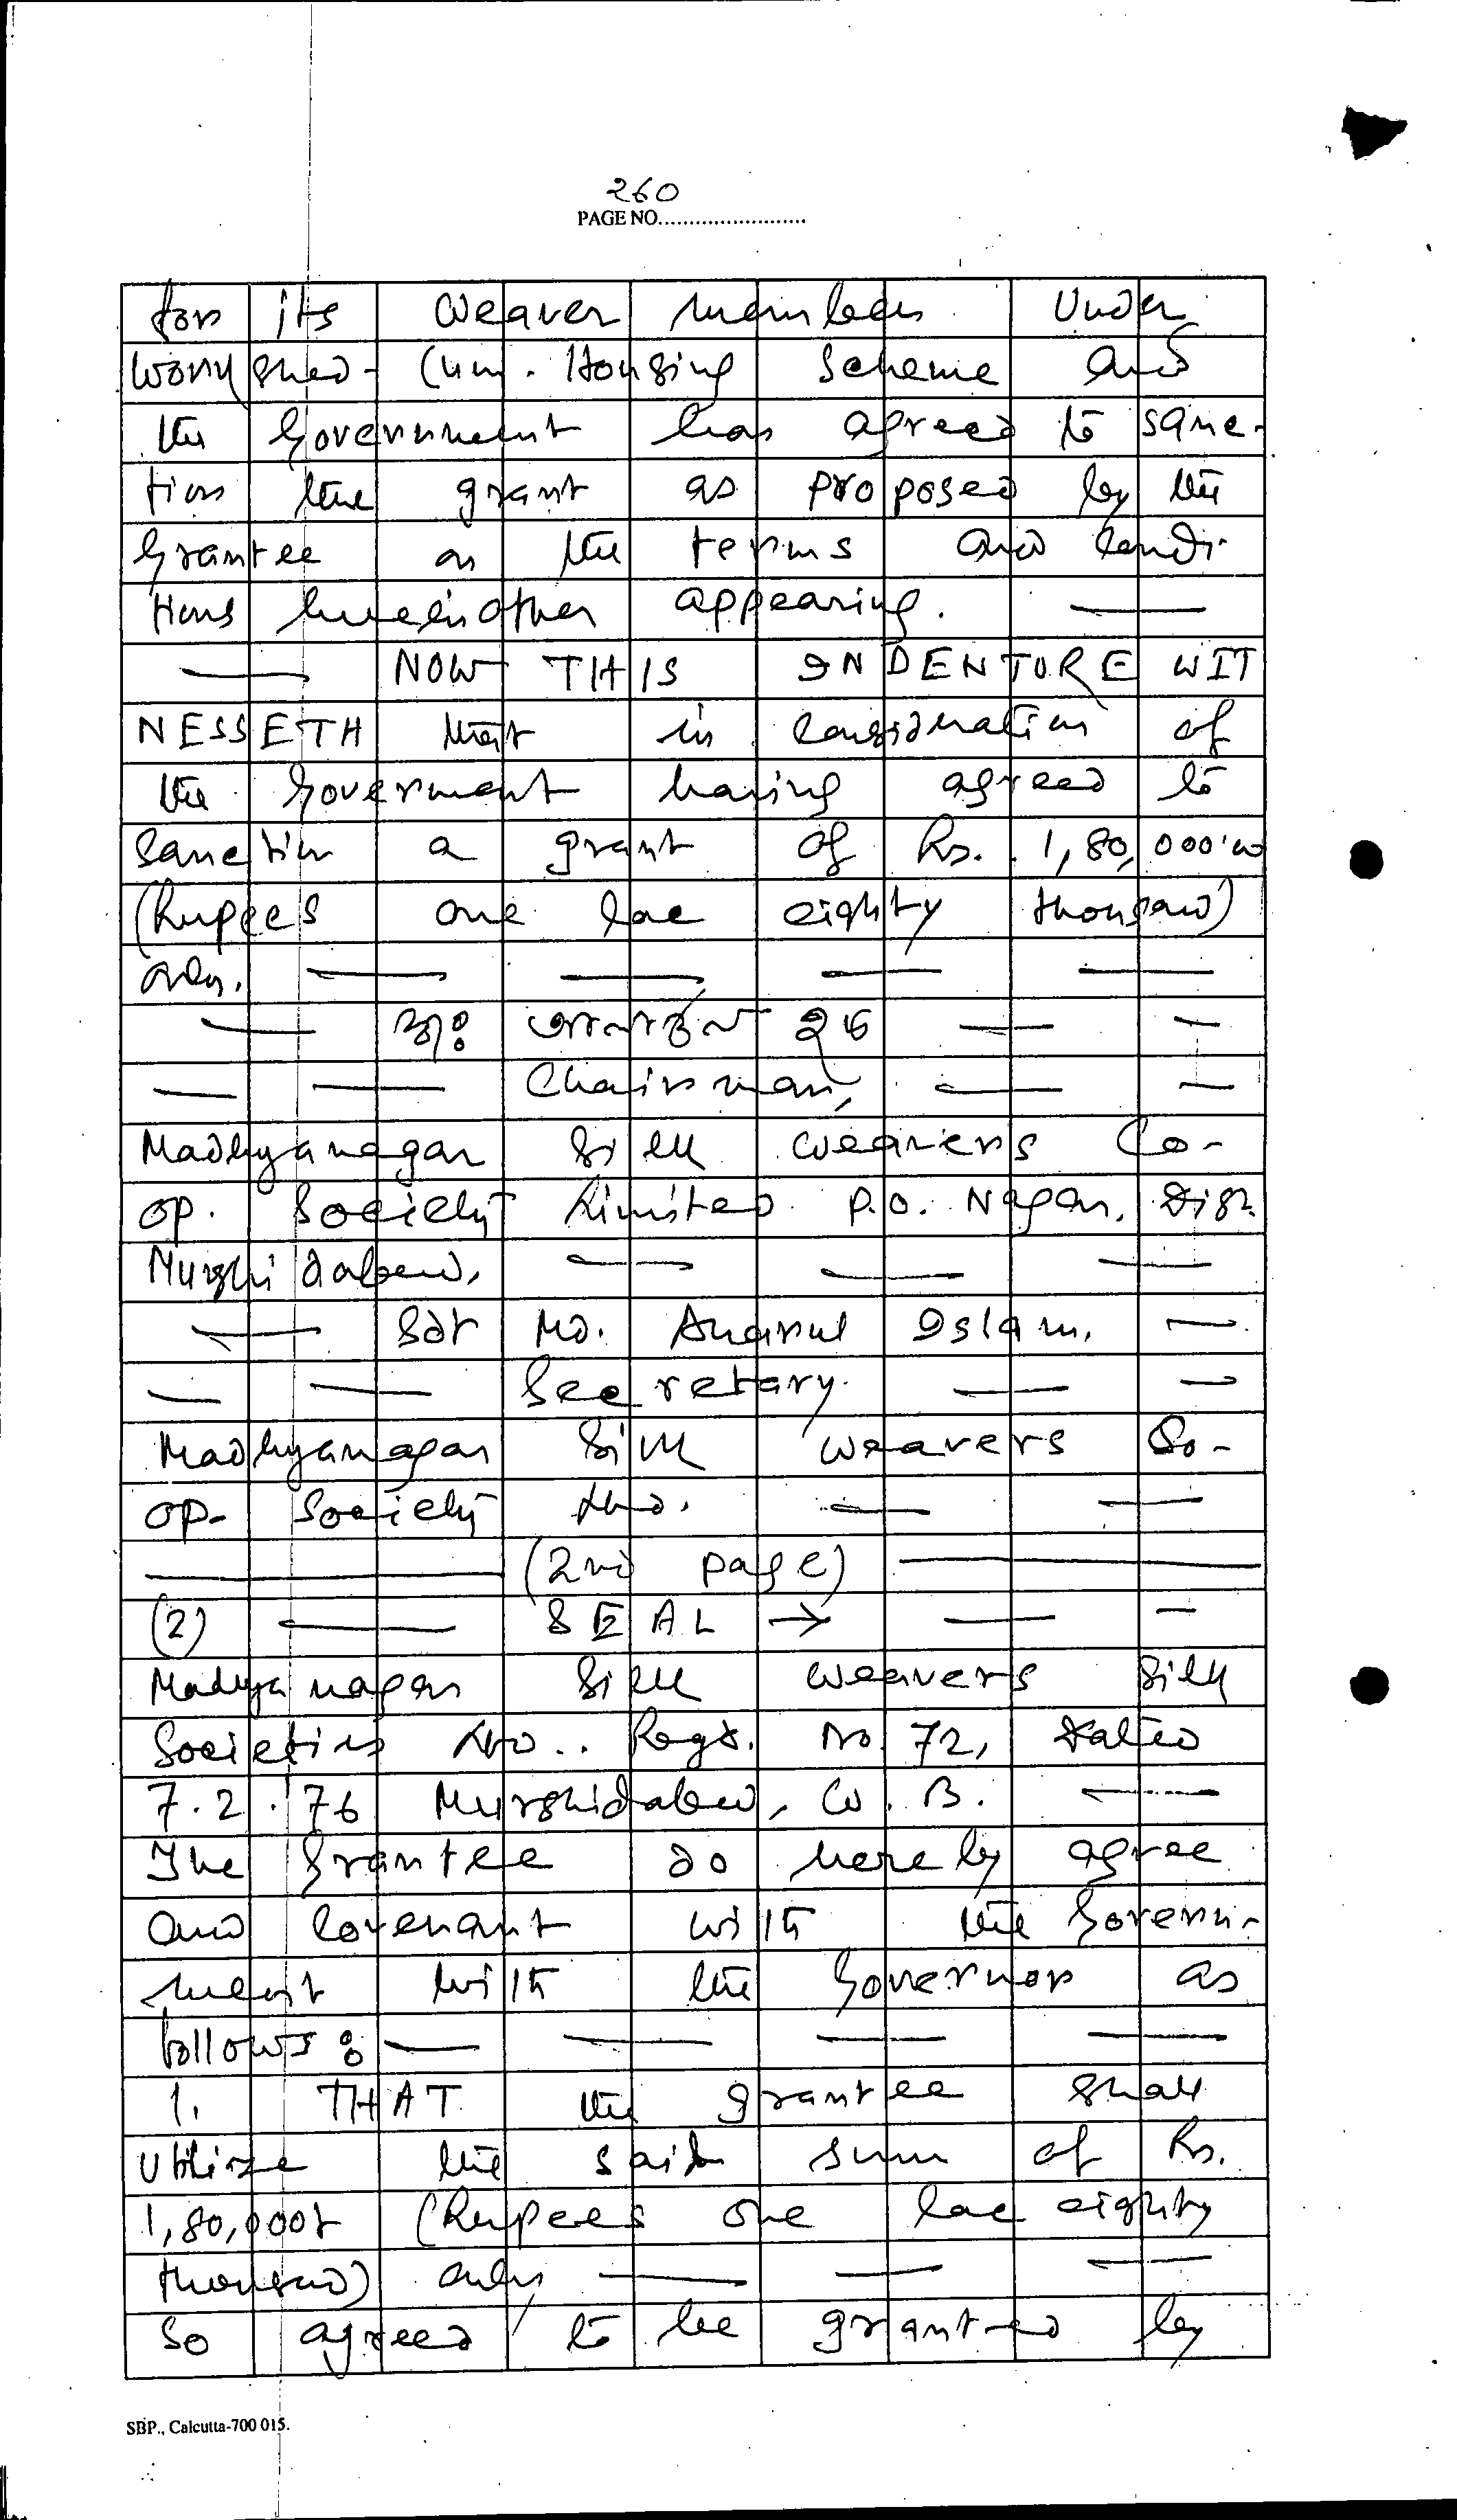 260
PAGE NO........................
for its weaver members Under
Workshed-Cum. Housing Scheme and
the Government has agreed to sanc-
tion the grant as proposed by the
Grantee on the terms and condi-
tions hereinafter appearing. —
— NOW THIS INDENTURE WIT
NESSETH that in consideration of
the Goverment having agreed to
Sanction a grant of Rs. 1,80,000.00
(Rupees one lac eighty thousand)
only. — — — —
— স্বাঃ — —
— — Chairman, — —
Madhyanagar Silk weavers Co-
op. Society Limited. P.O. Nagar, Dist.
Murshidabad, — — —
— Sdt Md. Anarul Islam. —
— — Secretary. — —
Madhyanagar Silk weavers Co-
op- Society Ltd. — —
— (2nd page) —
(2) — SEAL → — —
Madhyanagar Silk weavers Silk
Societies Ltd.. Regd. No. 72, Dated
7.2.'76 Murshidabad, W.B. —
The Grantee do hereby agree
and Covenant with the Govern-
ment with the Governor as
follows : — — — —
1. THAT the grantee shall
Utilize the said sum of Rs.
1,80,000/- (Rupees one lac eighty
thousand) only — — —
So agreed to be granted by
SBP., Calcutta-700 015.